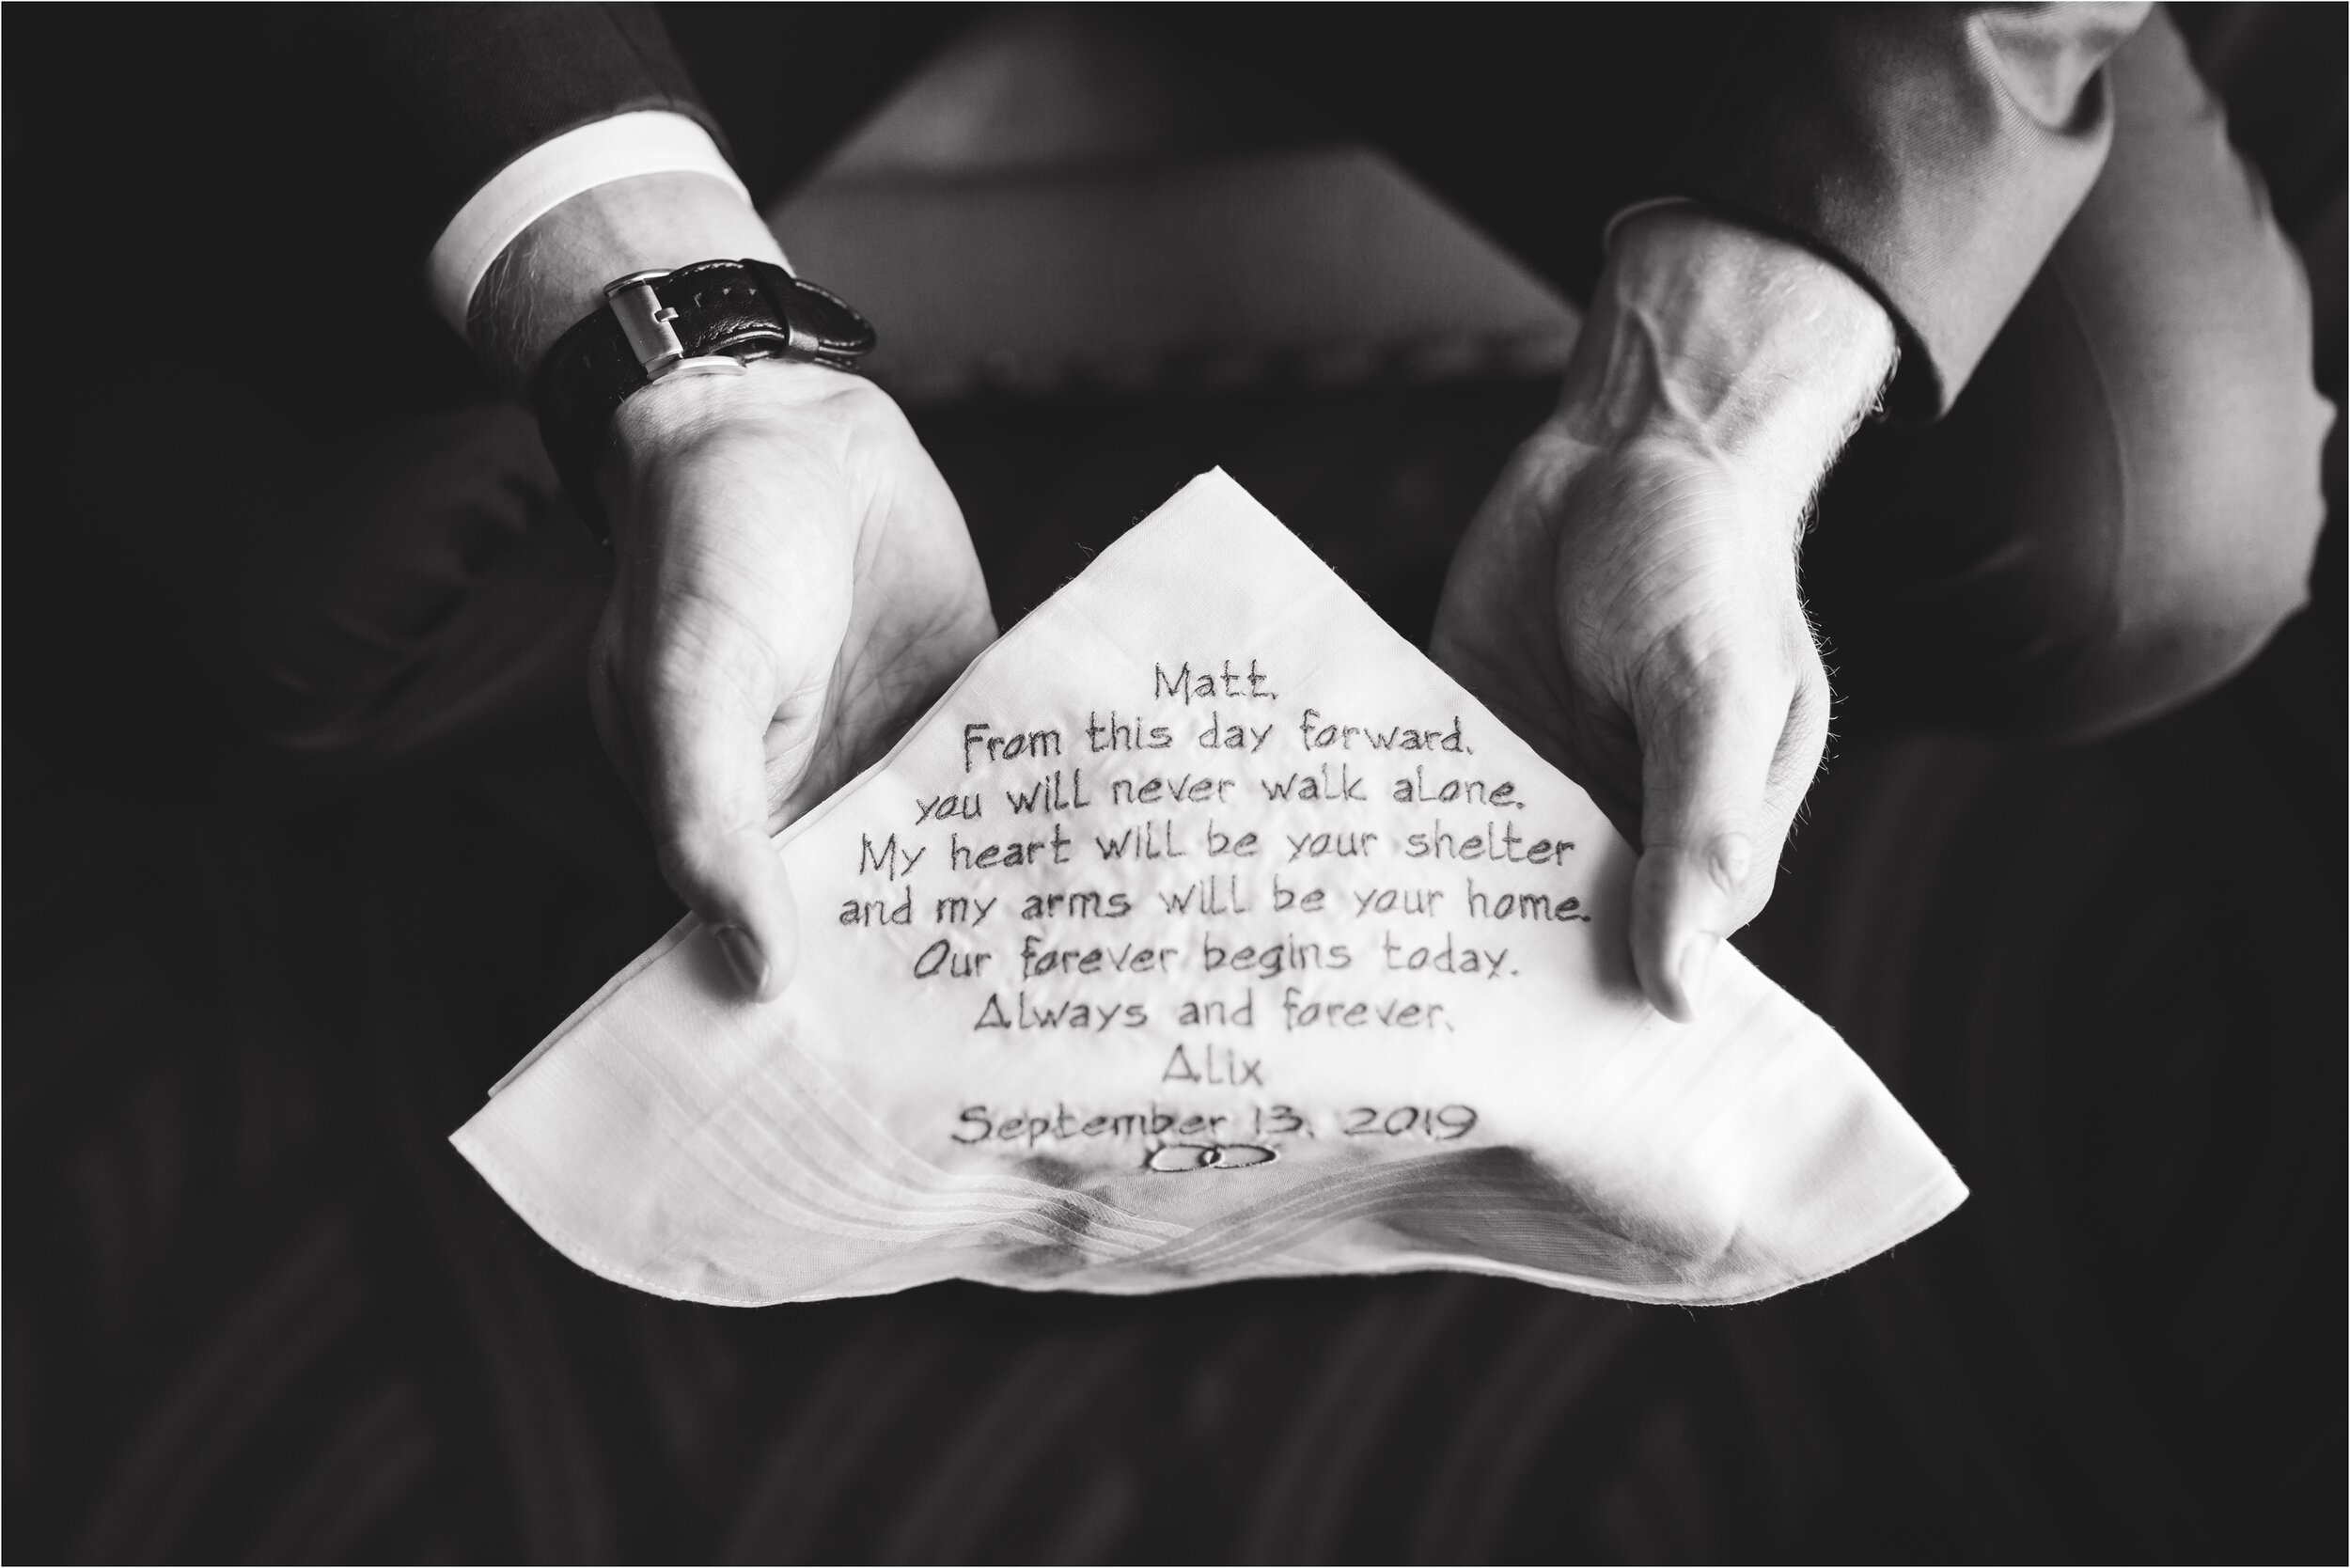 Matt,
From this day forward,
you will never walk alone.
My heart will be your shelter
and my arms will be your home.
Our forever begins today.
Always and forever,
Alix
September 13, 2019